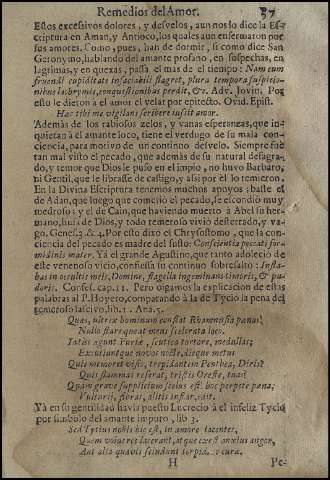 Remedios del Amor. 57
Estos excessivos dolores, y desvelos, aun nos lo dice la Es-
criptura en Aman, y Annoco, los quales aun enfermaron por
sus amores. Como, pues, han de dormir, si como dice San
Geronymo, hablando del amante profano, en sospechas, en
lagrimas, y en quexas, passa el mas de el tiempo: Nam cum
fruendi cupiditate insaciabili flagret, plura tempora suspicio-
nibus lachrymis, conquestionibus perdit, &c. Adv. Jovin. Por
esto le dieron à el amor el velar por epitecto. Ovid. Epist.
Hæc tibi me vigilans scribere iussit amor.
Además de los rabiosos zelos, y vanas esperanzas, que in-
quietan à el amante loco, tiene el verdugo de su mala con-
ciencia, para motivo de un continuo desvelo. Siempre fuè
tan mal visto el pecado, que además de su natural desagra-
do, y temor que Dios le puso en el impio, no huvo Barbaro,
ni Gentil, que se librasse de castigo, assi por èl lo temieron.
En la Divina Escriptura tenemos muchos apoyos: baste el
de Adan, que luego que cometiò el pecado, se escondiò muy
medroso: y el de Cain, que haviendo muerto à Abel su her-
mano, huìa de Dios, y todo temeroso viviò desterrado, y va-
go. Genes. 3. & 4. Por esto dixo el Chrysostomo, que la con-
ciencia del pecado es madre del susto: Conscientia peccati for-
midinis mater. Yà el grande Agustino, que tanto adoleciò de
este venenoso vicio, confiessa su continuo sobresalto: Insta-
bas in occultis meis, Domine, flagella ingeminans timoris, & pu-
doris. Confes. cap. 11. Pero oigamos la explicacion de estas
palabras al P. Hoyero, comparando à la de Tycio la pena del
temeroso lascivo, lib. 1. Ana. 5.
Quas, ultrix hominum constat Rhamnusia pœnas!
Nullo stare queat mens scelerata loco.
Intùs agunt Furiæ, scutica tortore, medullas;
Excutiuntque novos nocte, dieque metus
Quis memoret visis, trepidantem Penthea, Diris?
Quis flammas referat, tristis Oreste, tuas?
Quam grave supplicium sceius est! hoc perpete pœna;
Vulturis, fibras, alitis instar, edit.
Yà en su gentilidad havia puesto Lucrecio à el infeliz Tycio
por simbolo del amante impuro, lib. 3.
Sed Tytius nobis hic est, in amore iacentem,
Quem volucres lacerant, atque exest anxius angor,
Aut alia quavis scindunt torpedine curæ.
H Pe-